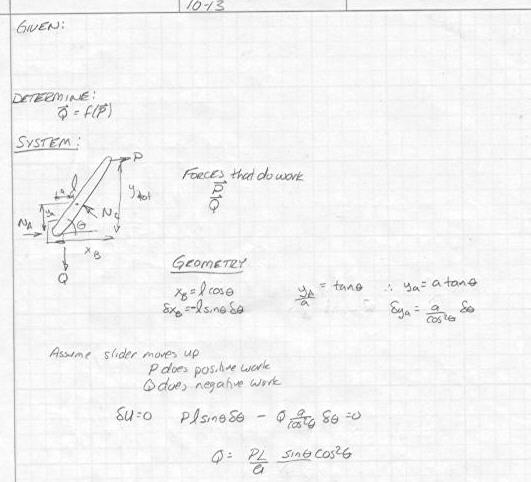 10-13
GIVEN:
DETERMINE:
Q = f(P)
SYSTEM:
P
l
a
y tot
FORCES that do work
P
Q
y_A
N_A
N_C
θ
x_B
Q
GEOMETRY
x_B = l cosθ
δx_B = -l sinθ δθ
y_A/a = tanθ ∴ y_A = a tanθ
δy_A = a/cos²θ δθ
Assume slider moves up
P does positive work
Q does negative work
δU=0 Pl sinθ δθ - Q a/cos²θ δθ =0
Q = PL/a sinθ cos²θ